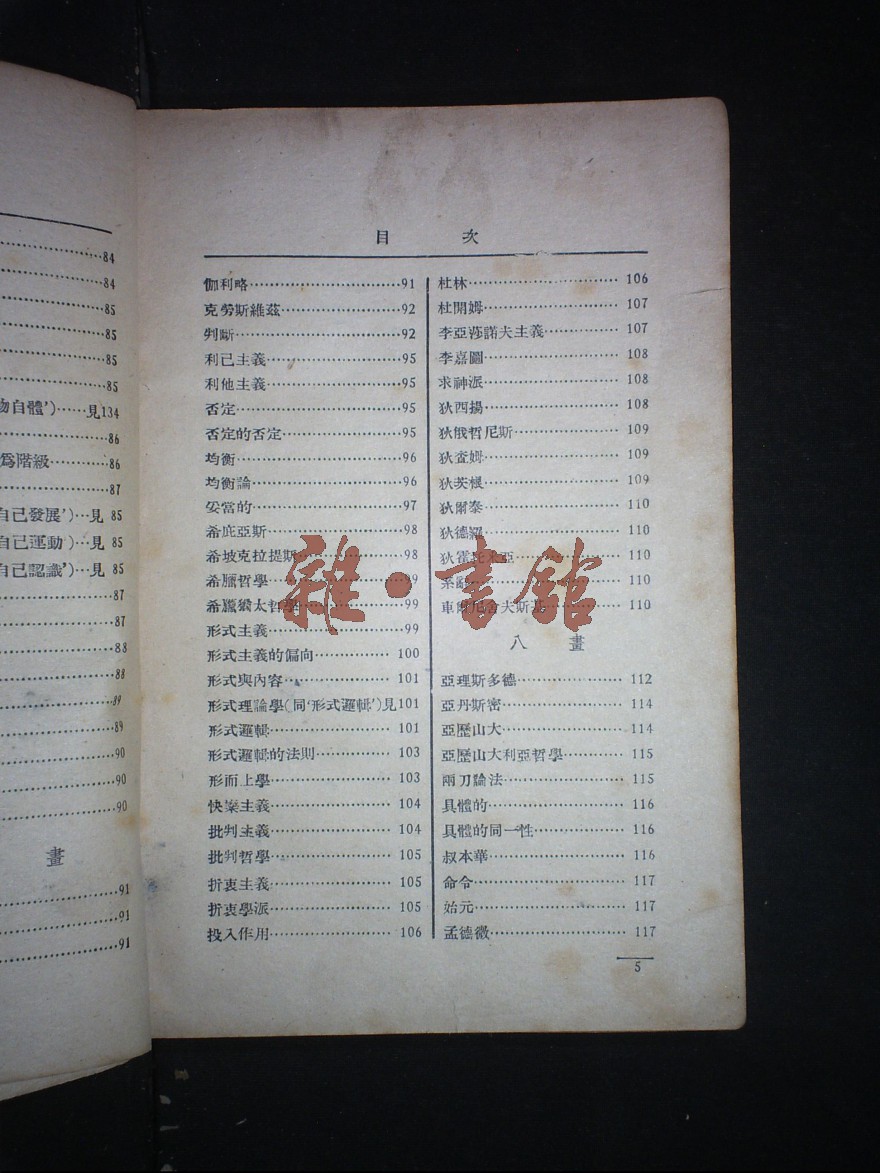 84
84
85
85
85
85
物自體’)……見134
86
爲階級………86
87
自己發展’)…見 85
自己運動’)…見 85
自己認識’)…見 85
87
87
88
88
89
89
90
90
90
畫
91
91
91
目 次
伽利略………91
克勞斯維茲………92
判斷………92
利己主義………95
利他主義………95
否定………95
否定的否定………95
均衡………96
均衡論………96
妥當的………97
希庇亞斯………98
希坡克拉提斯………98
希臘哲學………99
希臘猶太哲學………99
形式主義………99
形式主義的偏向………100
形式與內容………101
形式理論學(同‘形式邏輯’)見101
形式邏輯………101
形式邏輯的法則………103
形而上學………103
快樂主義………104
批判主義………104
批判哲學………105
折衷主義………105
折衷學派………105
投入作用………106
杜林………106
杜開姆………107
李亞莎諾夫主義………107
李嘉圖………108
求神派………108
狄西揚………108
狄俄哲尼斯………109
狄查姆………109
狄茨根………109
狄爾泰………110
狄德羅………110
狄霍 亞………110
系 ………110
車爾尼 夫斯基………110
八 畫
亞理斯多德………112
亞丹斯密………114
亞歷山大………114
亞歷山大利亞哲學………115
兩刀論法………115
具體的………116
具體的同一性………116
叔本華………116
命令………117
始元………117
孟德 ………117
5
雜·書館